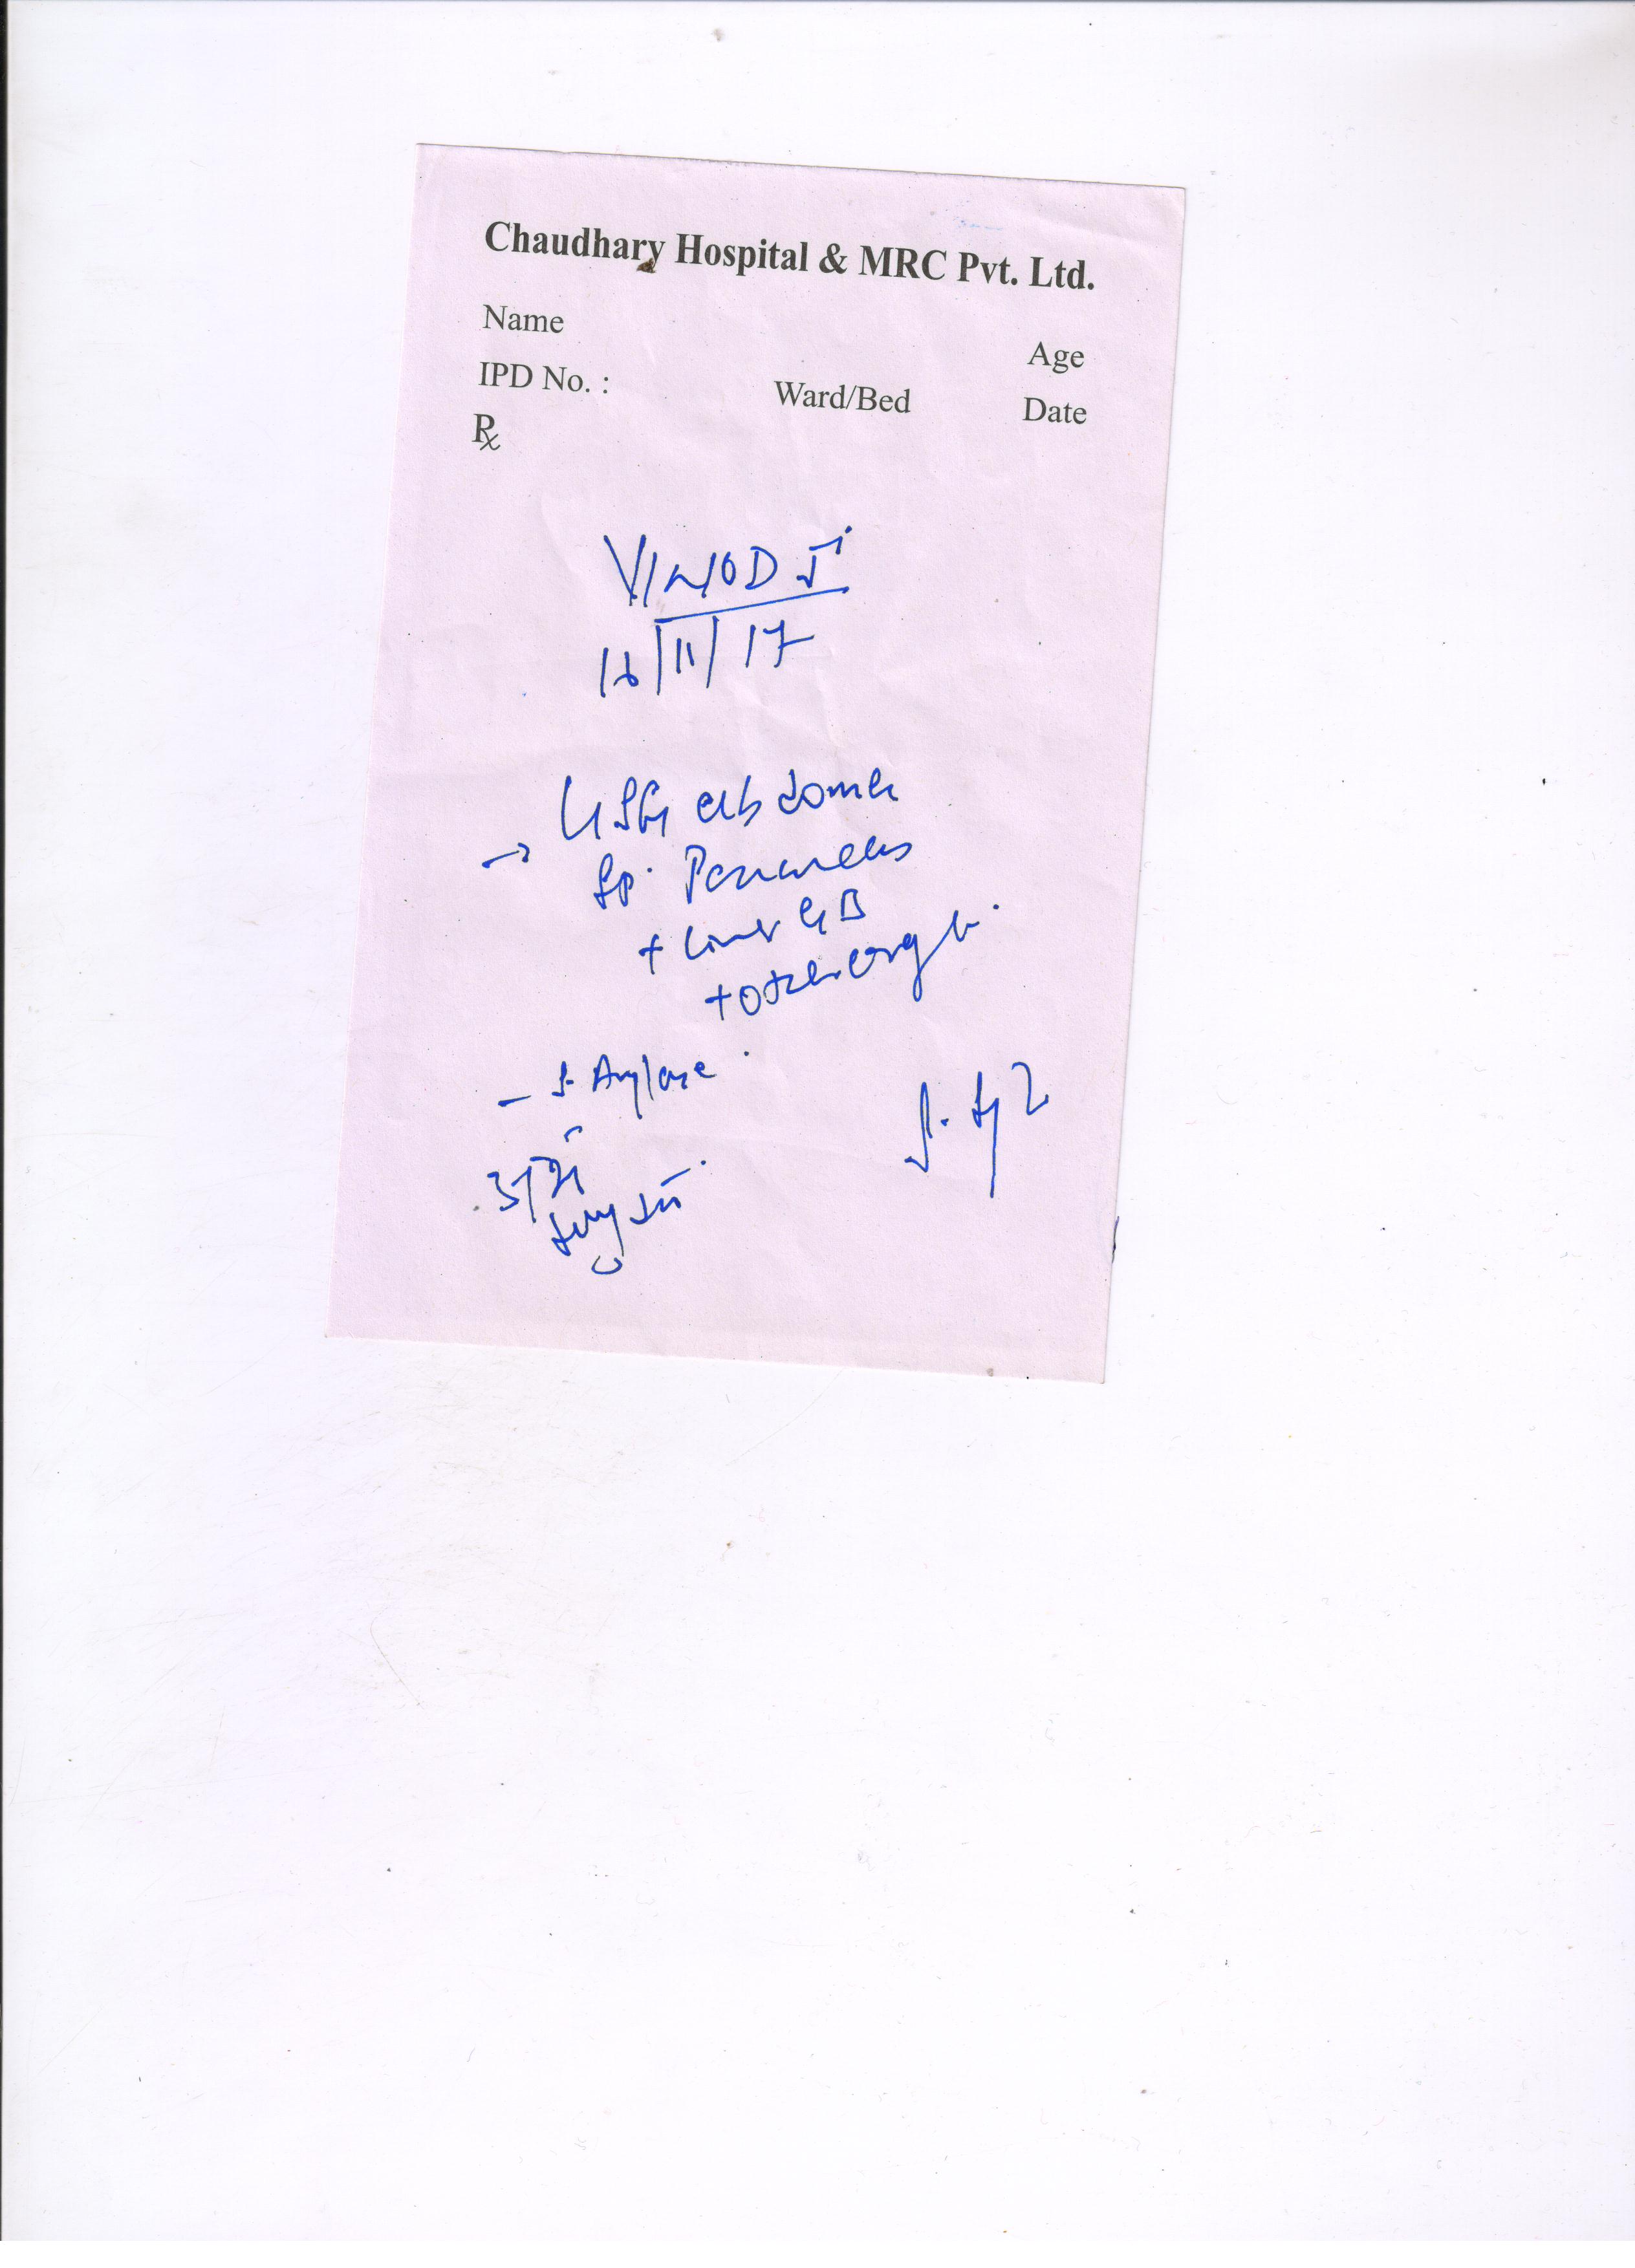 Chaudhary Hospital & MRC Pvt. Ltd.
Name
Age
IPD No. :
Ward/Bed
Date
℞
VINOD J
/11/17
→ USG abdomen
Sp. Pancreas
+ Liver GB
+ other organ
- S. Amylase